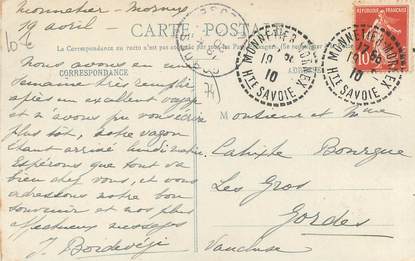 Monnetier-Mornex
19 avril
10 €
CARTE POSTALE
La Correspondance au recto n'est pas
CORRESPONDANCE
Nous avons eu une
semaine très remplie
après un excellent voyage
et n'avons pu vous écrire
plus tôt, notre wagon
étant arrivé
Espérons que tout va
bien chez vous, et vous
adressons notre bon
souvenir et nos plus
affectueux messages
J.
MONNETIER-MORNEX
10
HTE SAVOIE
MONNETIER-MORNEX
17
10
HTE SAVOIE
RÉPUBLIQUE FRANÇAISE
10
74
Monsieur et Mme
Calixte Bourgue
Les Gros
Gordes
Vaucluse